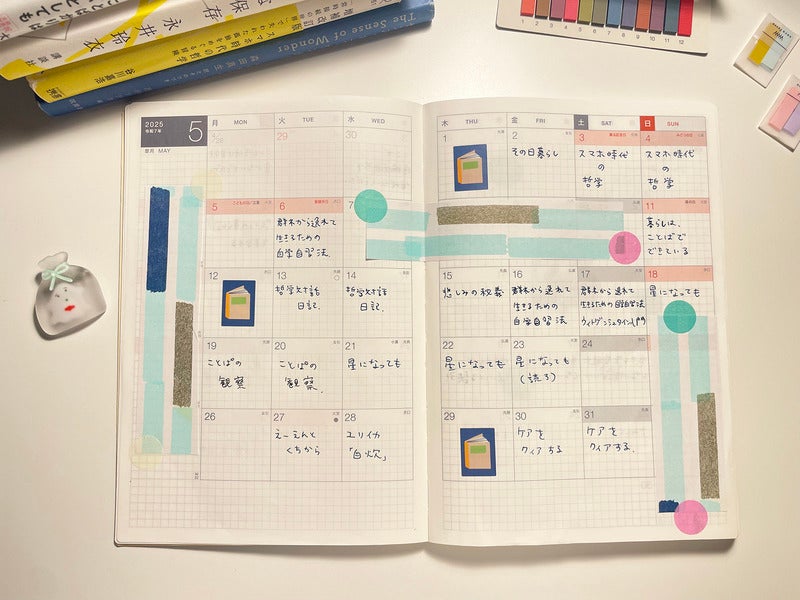 永井玲衣
谷川嘉浩
The Sense of Wonder
1 2 3 4 5 6 7 8 9 10 11 12
2025
令和7年
5
皐月 MAY
月 MON
火 TUE
水 WED
木 THU
金 FRI
土 SAT
日 SUN
29
30
1
2
その日暮らし
3
スマホ時代
の
哲学
4
スマホ時代
の
哲学
5
6
群木から遅れて
生きるための
自学自習法.
7
11
暮らしは、
ことばで
できている
12
13
哲学対話
日記.
14
哲学対話
日記.
15
悲しみの秘義
16
生きるための
自学自習法
17
生きるための自学自習法
ウィトゲンシュタイン入門
18
星になっても
19
ことばの
観察
20
ことばの
観察.
21
星になっても
22
星になっても
23
星になっても
(読了)
24
26
27
えーえんと
くちから
28
ユリイカ
「自炊」
29
30
ケアを
クィアする
31
ケアを
クィアする.